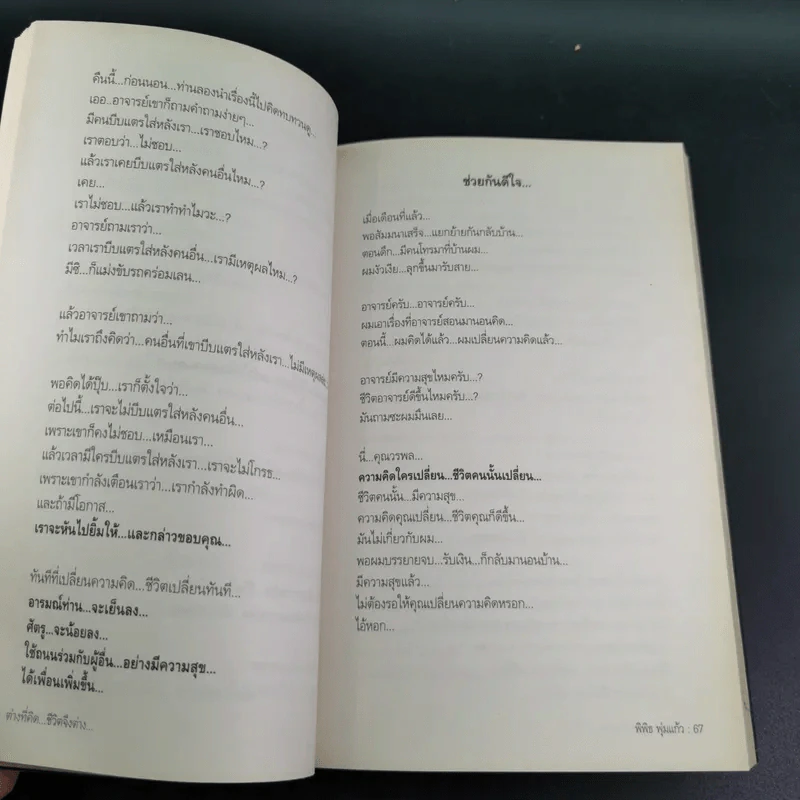 คืนนี้...ก่อนนอน...ท่านลองนำเรื่องนี้ไปคิดทบทวนดู...
เออ..อาจารย์เขาก็ถามคำถามง่ายๆ...
มีคนบีบแตรใส่หลังเรา...เราชอบไหม...?
เราตอบว่า...ไม่ชอบ...
แล้วเราเคยบีบแตรใส่หลังคนอื่นไหม...?
เคย...
เราไม่ชอบ...แล้วเราทำทำไมวะ...?
อาจารย์ถามเราว่า...
เวลาเราบีบแตรใส่หลังคนอื่น...เรามีเหตุผลไหม...?
มีซิ...ก็แม่งขับรถคร่อมเลน...
แล้วอาจารย์เขาถามว่า...
ทำไมเราถึงคิดว่า...คนอื่นที่เขาบีบแตรใส่หลังเรา...ไม่มีเหตุผล
พอคิดได้ปุ๊บ...เราก็ตั้งใจว่า...
ต่อไปนี้...เราจะไม่บีบแตรใส่หลังคนอื่น...
เพราะเขาก็คงไม่ชอบ...เหมือนเรา...
แล้วเวลามีใครบีบแตรใส่หลังเรา...เราจะไม่โกรธ...
เพราะเขากำลังเตือนเราว่า...เรากำลังทำผิด...
และถ้ามีโอกาส...
เราจะหันไปยิ้มให้...และกล่าวขอบคุณ...
ทันทีที่เปลี่ยนความคิด...ชีวิตเปลี่ยนทันที...
อารมณ์ท่าน...จะเย็นลง...
ศัตรู...จะน้อยลง...
ใช้ถนนร่วมกับผู้อื่น...อย่างมีความสุข...
ได้เพื่อนเพิ่มขึ้น...
ต่างที่คิด...ชีวิตจึงต่าง...
ช่วยกันดีใจ...
เมื่อเดือนที่แล้ว...
พอสัมมนาเสร็จ...แยกย้ายกันกลับบ้าน...
ตอนดึก...มีคนโทรมาที่บ้านผม...
ผมงัวเงีย...ลุกขึ้นมารับสาย...
อาจารย์ครับ...อาจารย์ครับ...
ผมเอาเรื่องที่อาจารย์สอนมานอนคิด...
ตอนนี้...ผมคิดได้แล้ว...ผมเปลี่ยนความคิดแล้ว...
อาจารย์มีความสุขไหมครับ...?
ชีวิตอาจารย์ดีขึ้นไหมครับ...?
มันถามซะผมมึนเลย...
นี่...คุณวรพล...
ความคิดใครเปลี่ยน...ชีวิตคนนั้นเปลี่ยน...
ชีวิตคนนั้น...มีความสุข...
ความคิดคุณเปลี่ยน...ชีวิตคุณก็ดีขึ้น...
มันไม่เกี่ยวกับผม...
พอผมบรรยายจบ...รับเงิน...ก็กลับมานอนบ้าน...
มีความสุขแล้ว...
ไม่ต้องรอให้คุณเปลี่ยนความคิดหรอก...
ไอ้หอก...
พิพิธ พุ่มแก้ว : 67